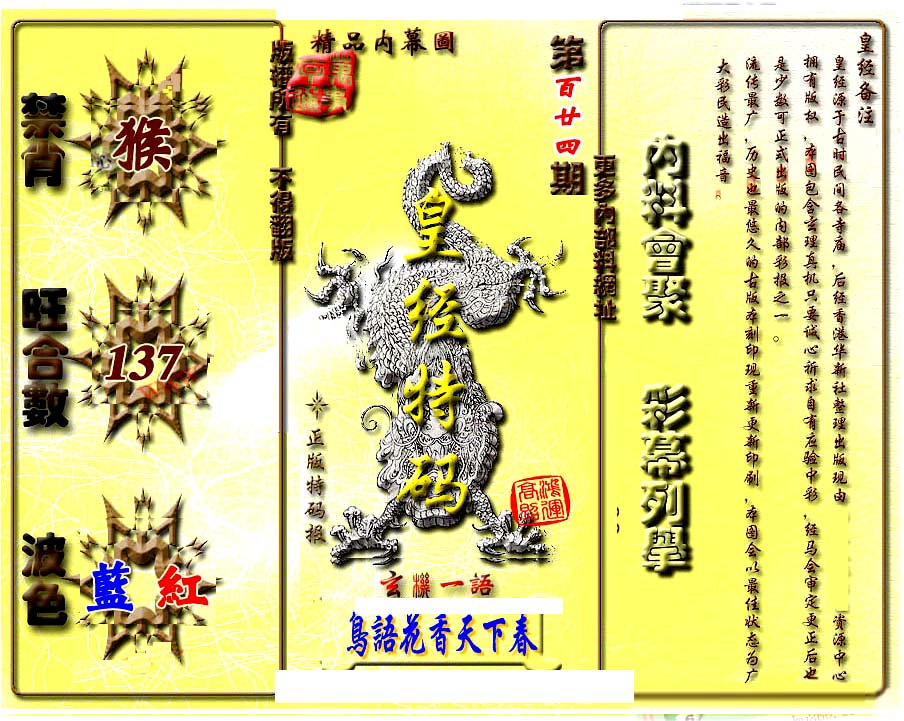 精品内幕圖
版權所有 不得翻版
禁肖
猴
旺合數
137
波色
藍 紅
第百廿四期
更多內部料網址
皇经特码
正版特码报
鴻運高照
玄機一語
鳥語花香天下春
内料會聚 彩幕列舉
皇经备注
皇经源于古时民间各寺庙,后经香港华新社整理出版现由 资源中心
拥有版权,本图包含玄理真机只要诚心祈求自有应验中彩,经马会审定更正后也
是少数可正式出版的内部彩报之一。
流传最广,历史也最悠久的古版本刻印现重新更新印刷,本图会以最佳状态为广
大彩民造出福音